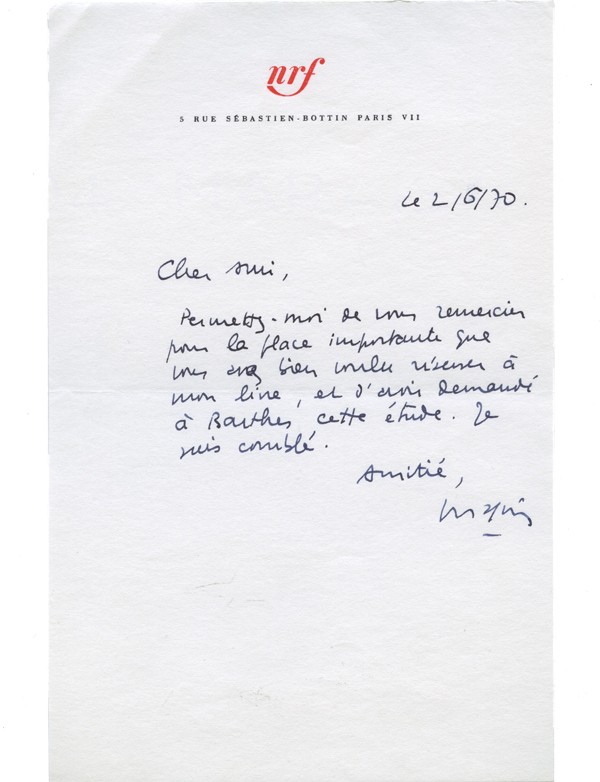 nrf
5 RUE SÉBASTIEN-BOTTIN PARIS VII
Le 2/6/70.
Cher ami,
Permettez-moi de vous remercier
pour la place importante que
vous avez bien voulu réserver à
mon livre, et d'avoir demandé
à Barthes cette étude. Je
suis comblé.
Amitié,